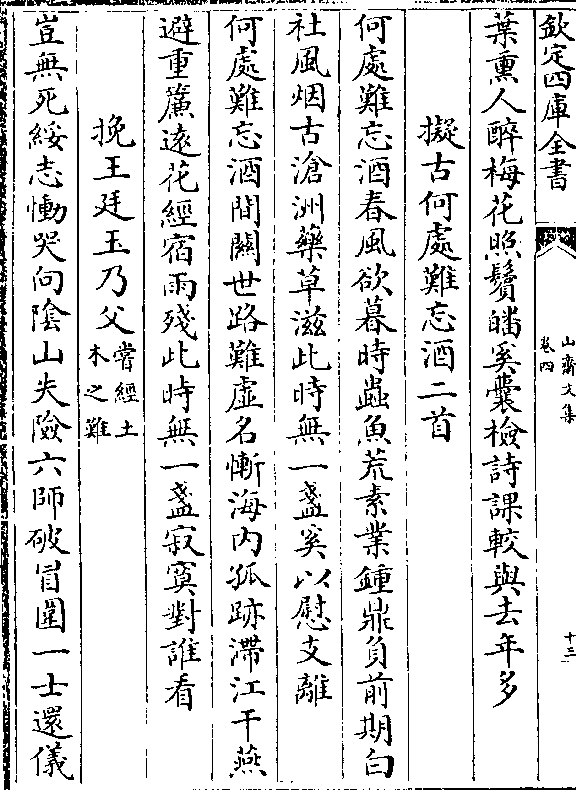 欽定四庫全書
山齋文集
卷四
十三
葉熏人醉梅花照鬢皤奚囊檢詩課較與去年多
擬古何處難忘酒二首
何處難忘酒春風欲暮時蟲魚荒素業鍾鼎負前期白
社風烟古滄洲藥草滋此時無一盞奚以慰支離
何處難忘酒間關世路難虛名慚海內孤跡滯江干燕
避重簾遠花經宿雨殘此時無一盞寂寞對誰看
挽王廷玉乃父嘗經土
木之難
豈無死綏志慟哭向陰山失險六師破冒圍一士還儀